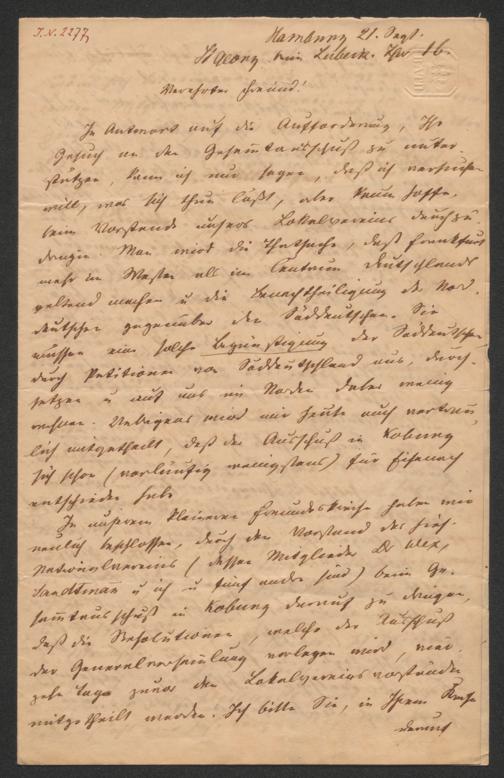 I.N. 2277
Hamburg 21. Sept.
St Georg beim Lübeck. Thor 16.
Verehrter Freund!
In Antwort auf die Aufforderung, Ihr
Gesuch an den Gesammtausschuß zu unter-
stützen, kann ich nur sagen, daß ich versuchen
will, was sich thun läßt, aber kaum hoffe,
beim Vorstande unsers Lokalvereins durchzu-
dringen. Man wird die Thatsache, daß Frankfurt
mehr im Westen als im Centrum Deutschlands
geltend machen u die Benachtheiligung der Nord-
deutschen gegenüber den Süddeutschen. Sie
müssen eine solche Begünstigung der Süddeutschen
durch Petitionen von Süddeutschland aus, durch-
setzen u auf uns im Norden dabei wenig
rechnen. Uebrigens wird mir heute auch vertrau-
lich mitgetheilt, daß der Ausschuß in Koburg
sich schon (vorläufig wenigstens) für Eisenach
entschieden habe
In unserem kleineren Freundeskreise haben wir
neulich beschlossen, durch den Vorstand des hies.
Nationalvereins (dessen Mitglieder Dr Wex,
Sandtman u ich u fünf andre sind) beim Ge-
sammtausschuß in Koburg darauf zu dringen,
daß die Resolutionen, welche der Ausschuß
der Generalversammlung vorlegen wird, vier-
zehn Tage zuvor den Lokalvereinsvorständen
mitgetheilt werden. Ich bitte Sie, in Ihrem Kreise
darauf